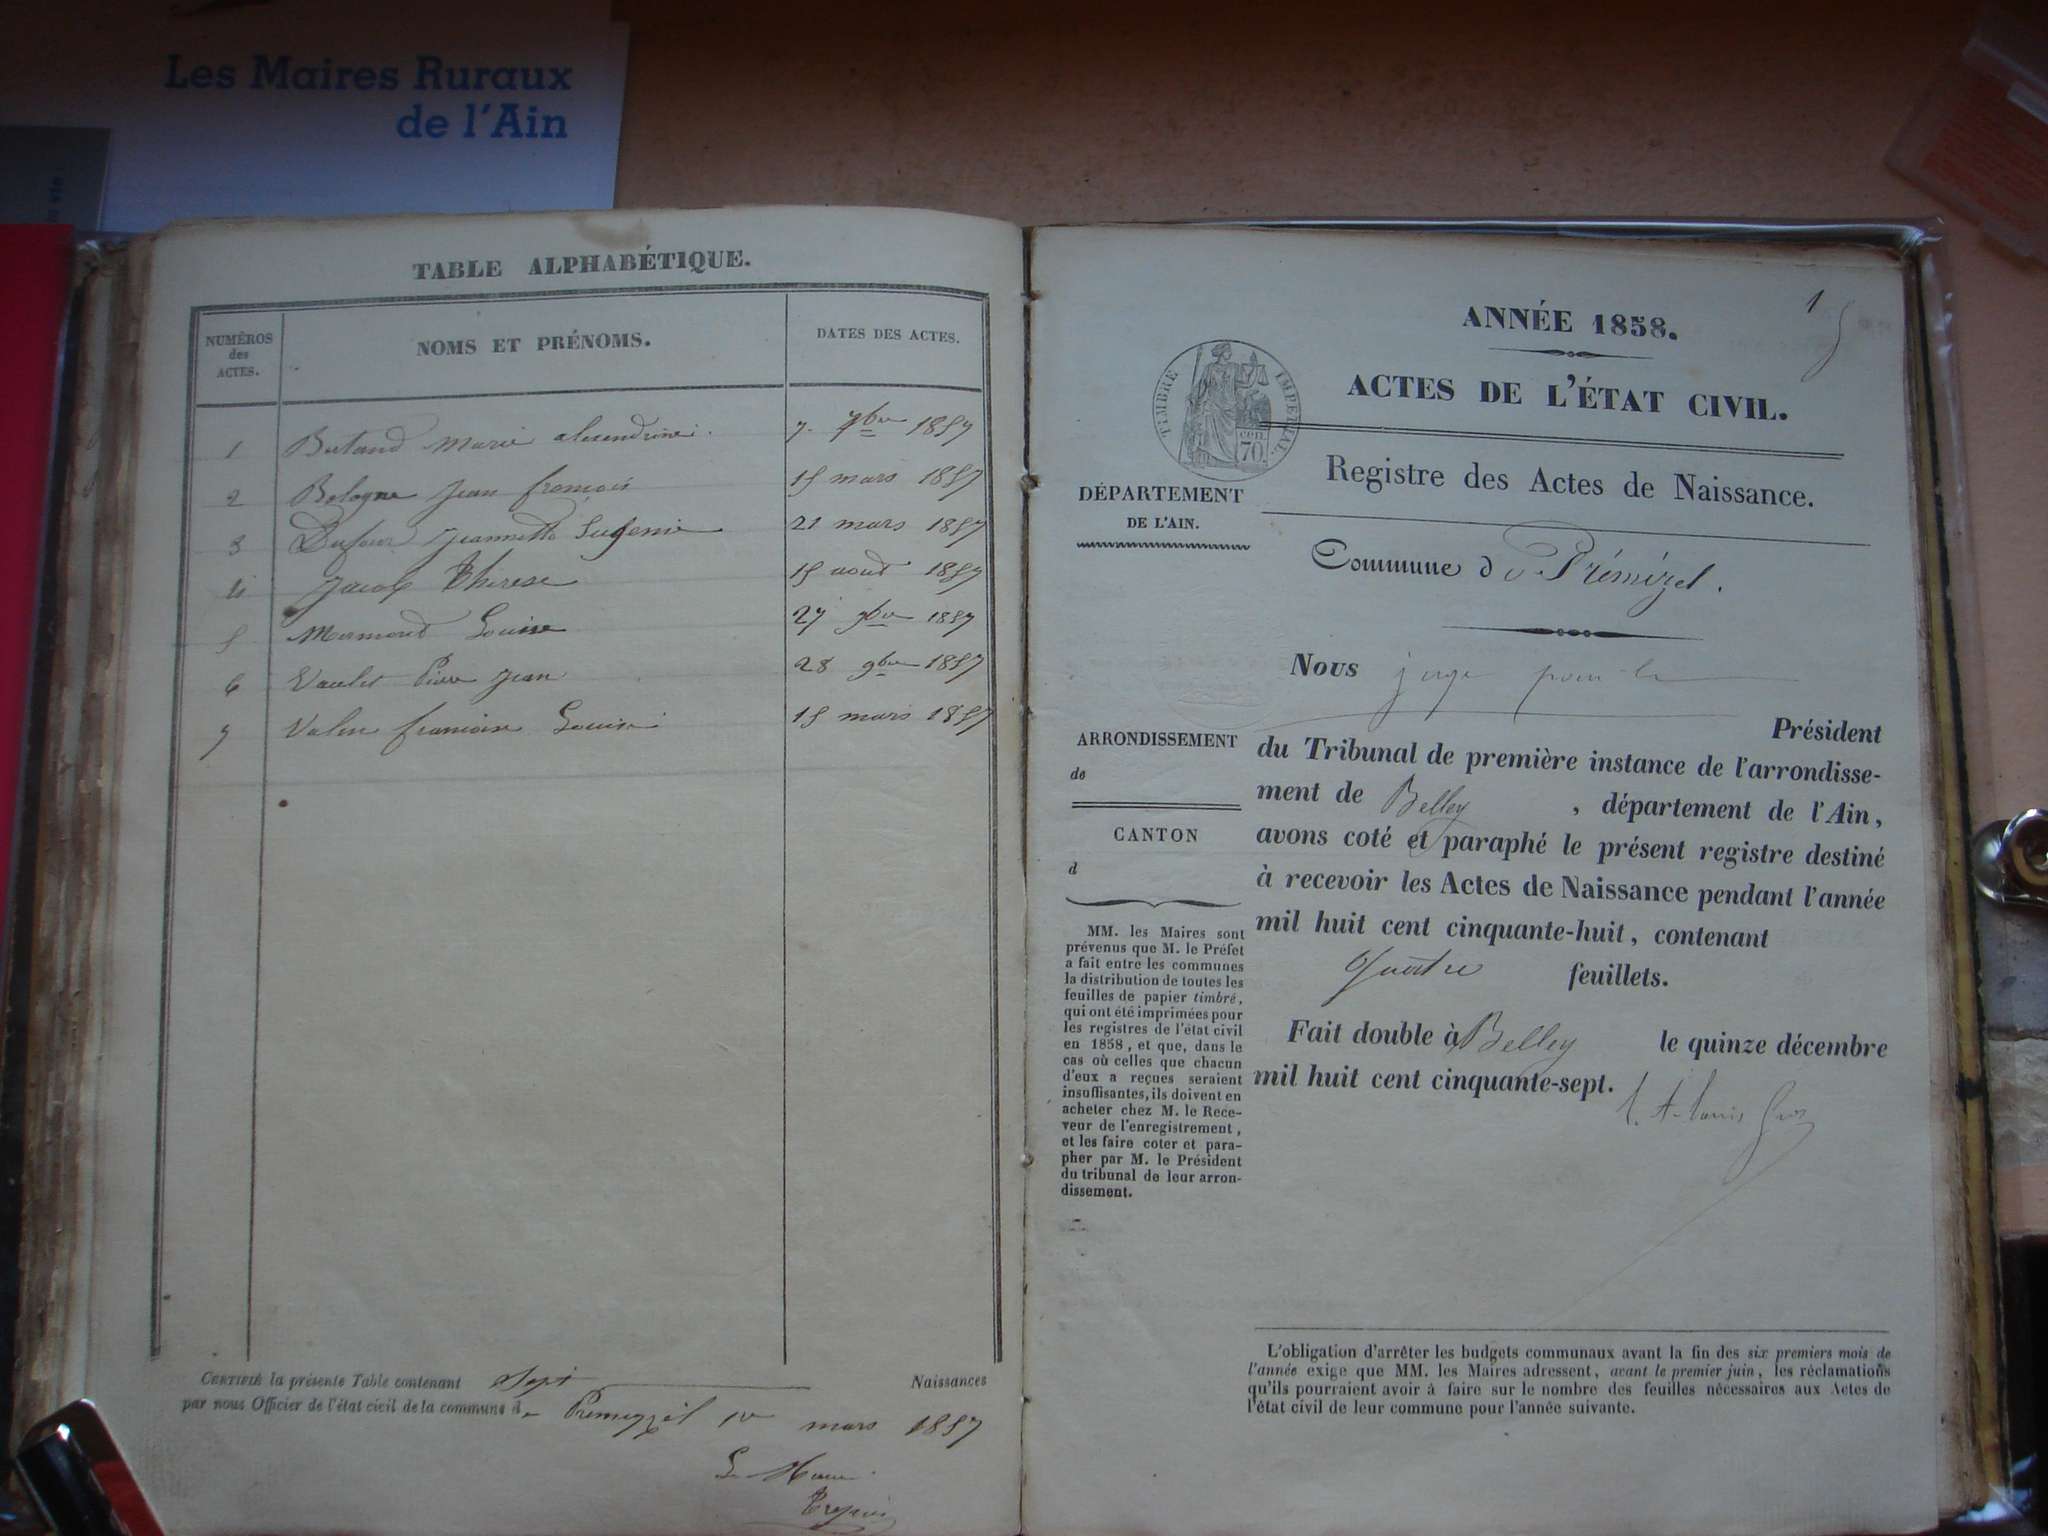 Les Maires Ruraux
de l'Ain
TABLE ALPHABÉTIQUE.
NUMÉROS
des
ACTES.
NOMS ET PRÉNOMS.
DATES DES ACTES.
1 Bertand Marie alexendrine 7. 1857
2 Bologne Jean françois 15 mars 1857
3 Dufour Jeannette Eugenie 21 mars 1857
4 Jacob Therese 15 aout 1857
5 Mermond Louise 27 9bre 1857
6 Vaulet Pierre Jean 28 9bre 1857
7 Louise 15 mars 1857
CERTIFIÉ la présente Table contenant Sept Naissances
par nous Officier de l'état civil de la commune de Premeyzel 1er mars 1857
Le Maire
ANNÉE 1858.
1
TIMBRE IMPÉRIAL.
cen.
70.
ACTES DE L'ÉTAT CIVIL.
Registre des Actes de Naissance.
DÉPARTEMENT
DE L'AIN.
Commune de Prémézel.
Nous juge pour le
Président
du Tribunal de première instance de l'arrondisse-
ment de Belley, département de l'Ain,
avons coté et paraphé le présent registre destiné
à recevoir les Actes de Naissance pendant l'année
mil huit cent cinquante-huit, contenant
Quatre feuillets.
Fait double à Belley le quinze décembre
mil huit cent cinquante-sept.
ARRONDISSEMENT
de
CANTON
d
MM. les Maires sont
prévenus que M. le Préfet
a fait entre les communes
la distribution de toutes les
feuilles de papier timbré,
qui ont été imprimées pour
les registres de l'état civil
en 1858, et que, dans le
cas où celles que chacun
d'eux a reçues seraient
insuffisantes, ils doivent en
acheter chez M. le Rece-
veur de l'enregistrement,
et les faire coter et para-
pher par M. le Président
du tribunal de leur arron-
dissement.
L'obligation d'arrêter les budgets communaux avant la fin des six premiers mois de
l'année exige que MM. les Maires adressent, avant le premier juin, les réclamations
qu'ils pourraient avoir à faire sur le nombre des feuilles nécessaires aux Actes de
l'état civil de leur commune pour l'année suivante.